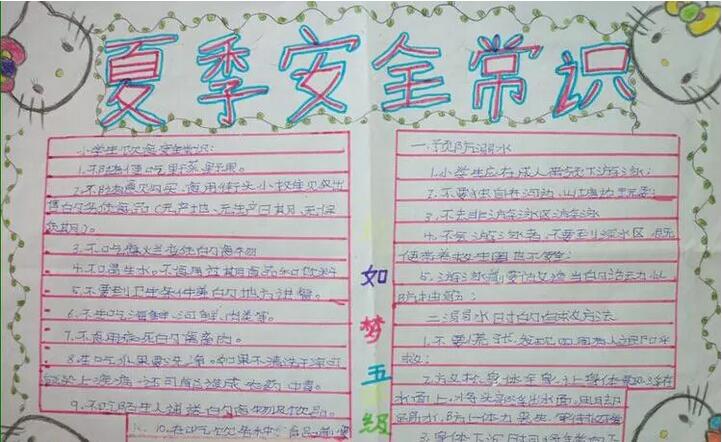 夏季安全常识
小学生饮食安全常识:
1.不随便吃野菜野果。
2.不随意购买、食用街头小摊贩出
售的劣质食品(无产地、无生产日期、无保
质期)。
3.不吃腐烂变质的食物
4.不喝生水。不食用过期食品和饮料
5.不要到卫生条件差的地方进餐。
6.不生吃海鲜、河鲜、肉类等。
7.不食用病死的禽畜肉。
8.生吃瓜果要洗净。如果不清洗干净可
染上疾病,还可能造成农药中毒。
9.不吃陌生人
如梦五级
一.预防溺水
1.小学生应有成人带领下游泳;
2.不要独自在河边、山塘边玩耍;
3.不去非游泳区游泳
4.不会游泳者,不要到深水区,即
使带着救生圈也不安全;
5.游泳前要做适当的活动,以
防抽筋;
二.溺水时的自救方法
1.不要慌张,发现周围有人立即呼
救;
2.放松身体
水面上,
3.身体下沉